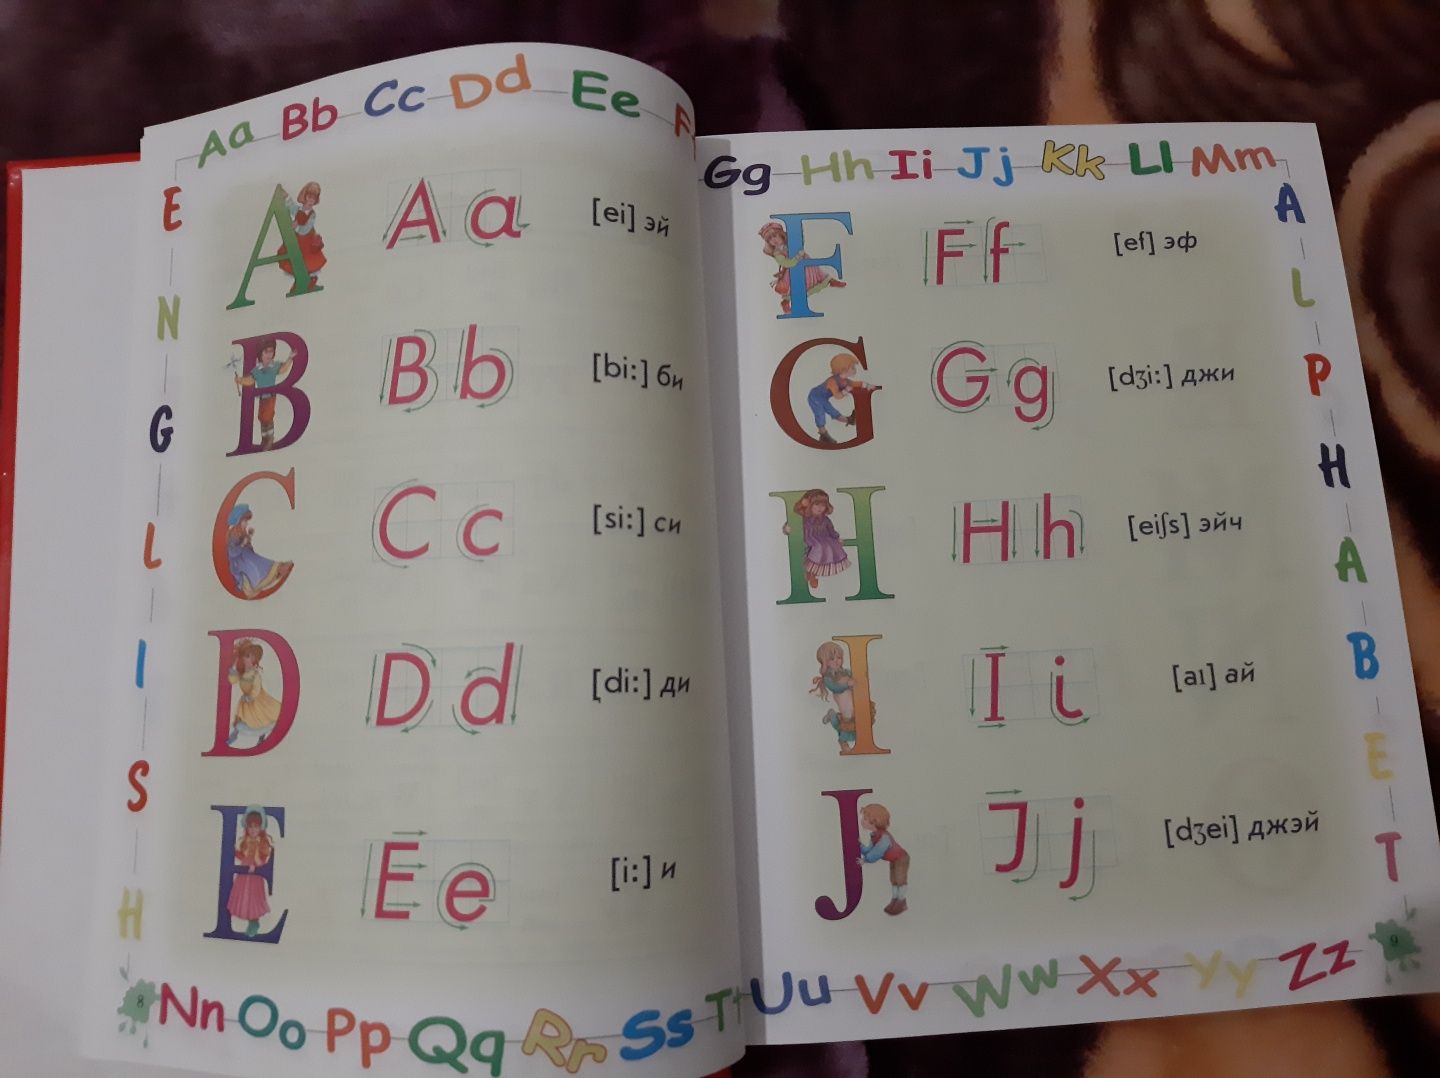 Aa Bb Cc Dd Ee F
ENGLISH
A A a [ei] эй
B B b [bi:] би
C C c [si:] си
D D d [di:] ди
E E e [i:] и
8
Nn Oo Pp Qq Rr Ss Tt
Gg Hh Ii Jj Kk Ll Mm
ALPHABET
F F f [ef] эф
G G g [dʒi:] джи
H H h [eiʃs] эйч
I I i [aı] ай
J J j [dʒei] джэй
9
Uu Vv Ww Xx Yy Zz